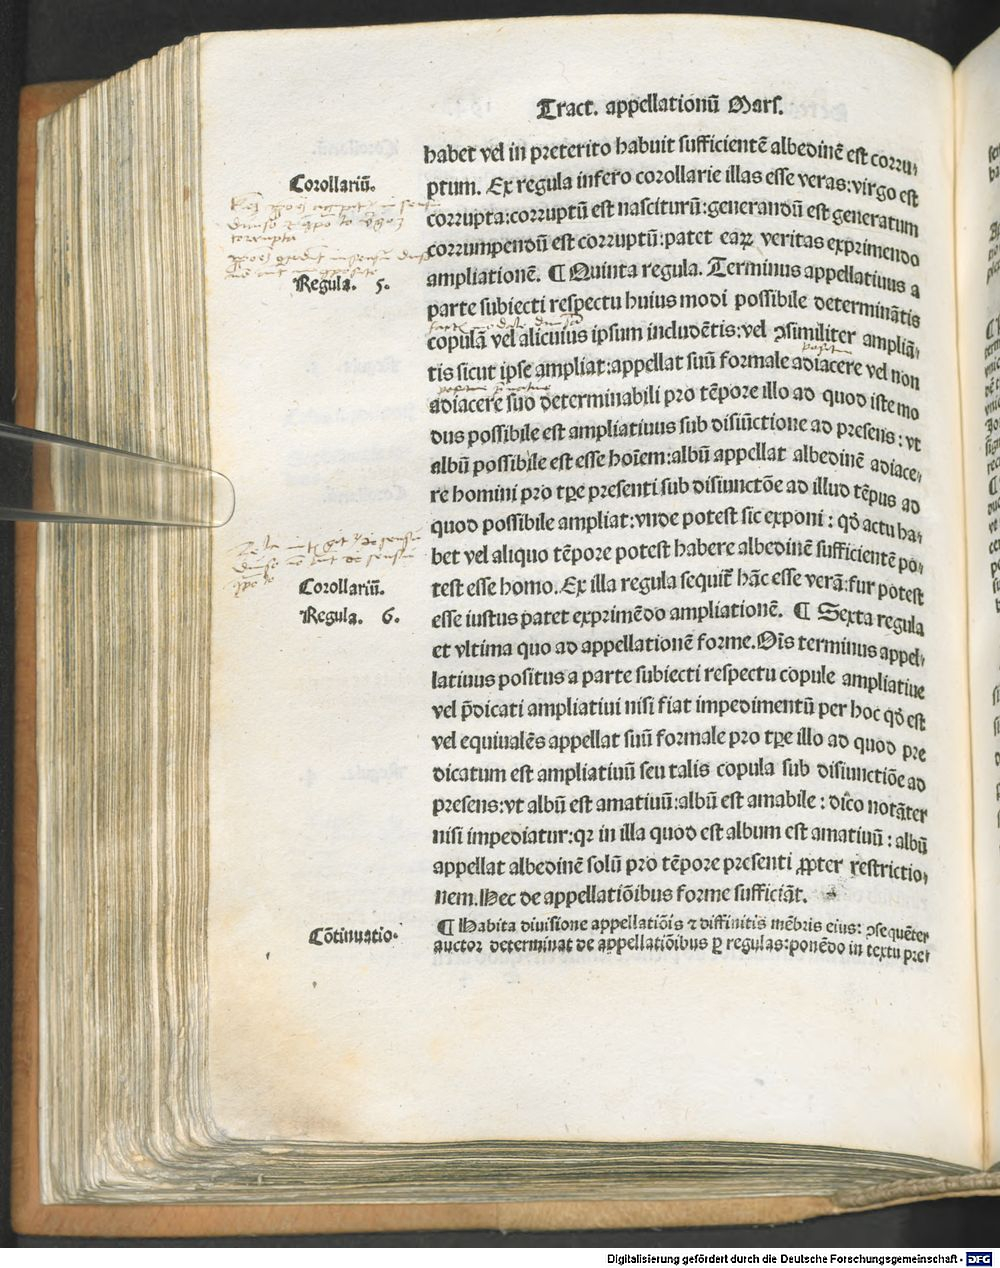 Tract. appellationū Mars.
habet vel in preterito habuit sufficientē albedinē est corru-
Corollariū.
ptum. Ex regula infero corollarie illas esse veras: virgo est
corrupta: corruptū est nasciturū: generandū est generatum
corrumpendū est corruptū: patet eaꝝ veritas exprimendo
Regula. 5.
ampliationē. ¶ Quinta regula. Terminus appellatiuus a
parte subiecti respectu huius modi possibile determinātis
copulā vel alicuius ipsum includētis: vel ↄsimiliter ampliā-
tis sicut ipse ampliat: appellat suū formale adiacere vel non
adiacere suo determinabili pro tēpore illo ad quod iste mo
dus possibile est ampliatiuus sub disiūctione ad presens: vt
albū possibile est esse hoīem: albū appellat albedinē adiace-
re homini pro tꝑe presenti sub disiunctōe ad illud tēpus ad
quod possibile ampliat: vnde potest sic exponi: qđ actu ha-
bet vel aliquo tēpore potest habere albedinē sufficientē po-
Corollariū.
test esse homo. Ex illa regula sequit̄ hāc esse verā: fur potest
Regula. 6.
esse iustus patet exprimēdo ampliationē. ¶ Sexta regula
et vltima quo ad appellationē forme. Oīs terminus appel-
latiuus positus a parte subiecti respectu copule ampliatiue
vel p̄dicati ampliatiui nisi fiat impedimentū per hoc qđ est
vel equiualēs appellat suū formale pro tꝑe illo ad quod pre
dicatum est ampliatiuū seu talis copula sub disiunctiōe ad
presens: vt albū est amatiuū: albū est amabile: dico notāter
nisi impediatur: qꝛ in illa quod est album est amatiuū: albū
appellat albedinē solū pro tēpore presenti ꝓpter restrictio-
nem. Hec de appellatiōibus forme sufficiāt.
Cōtinuatio.
¶ Habita diuisione appellatiōis ⁊ diffinitis mēbris eius: ↄsequēter
auctor determinat de appellatiōibus ꝑ regulas: ponēdo in textu pre-
Digitalisierung gefördert durch die Deutsche Forschungsgemeinschaft - DFG